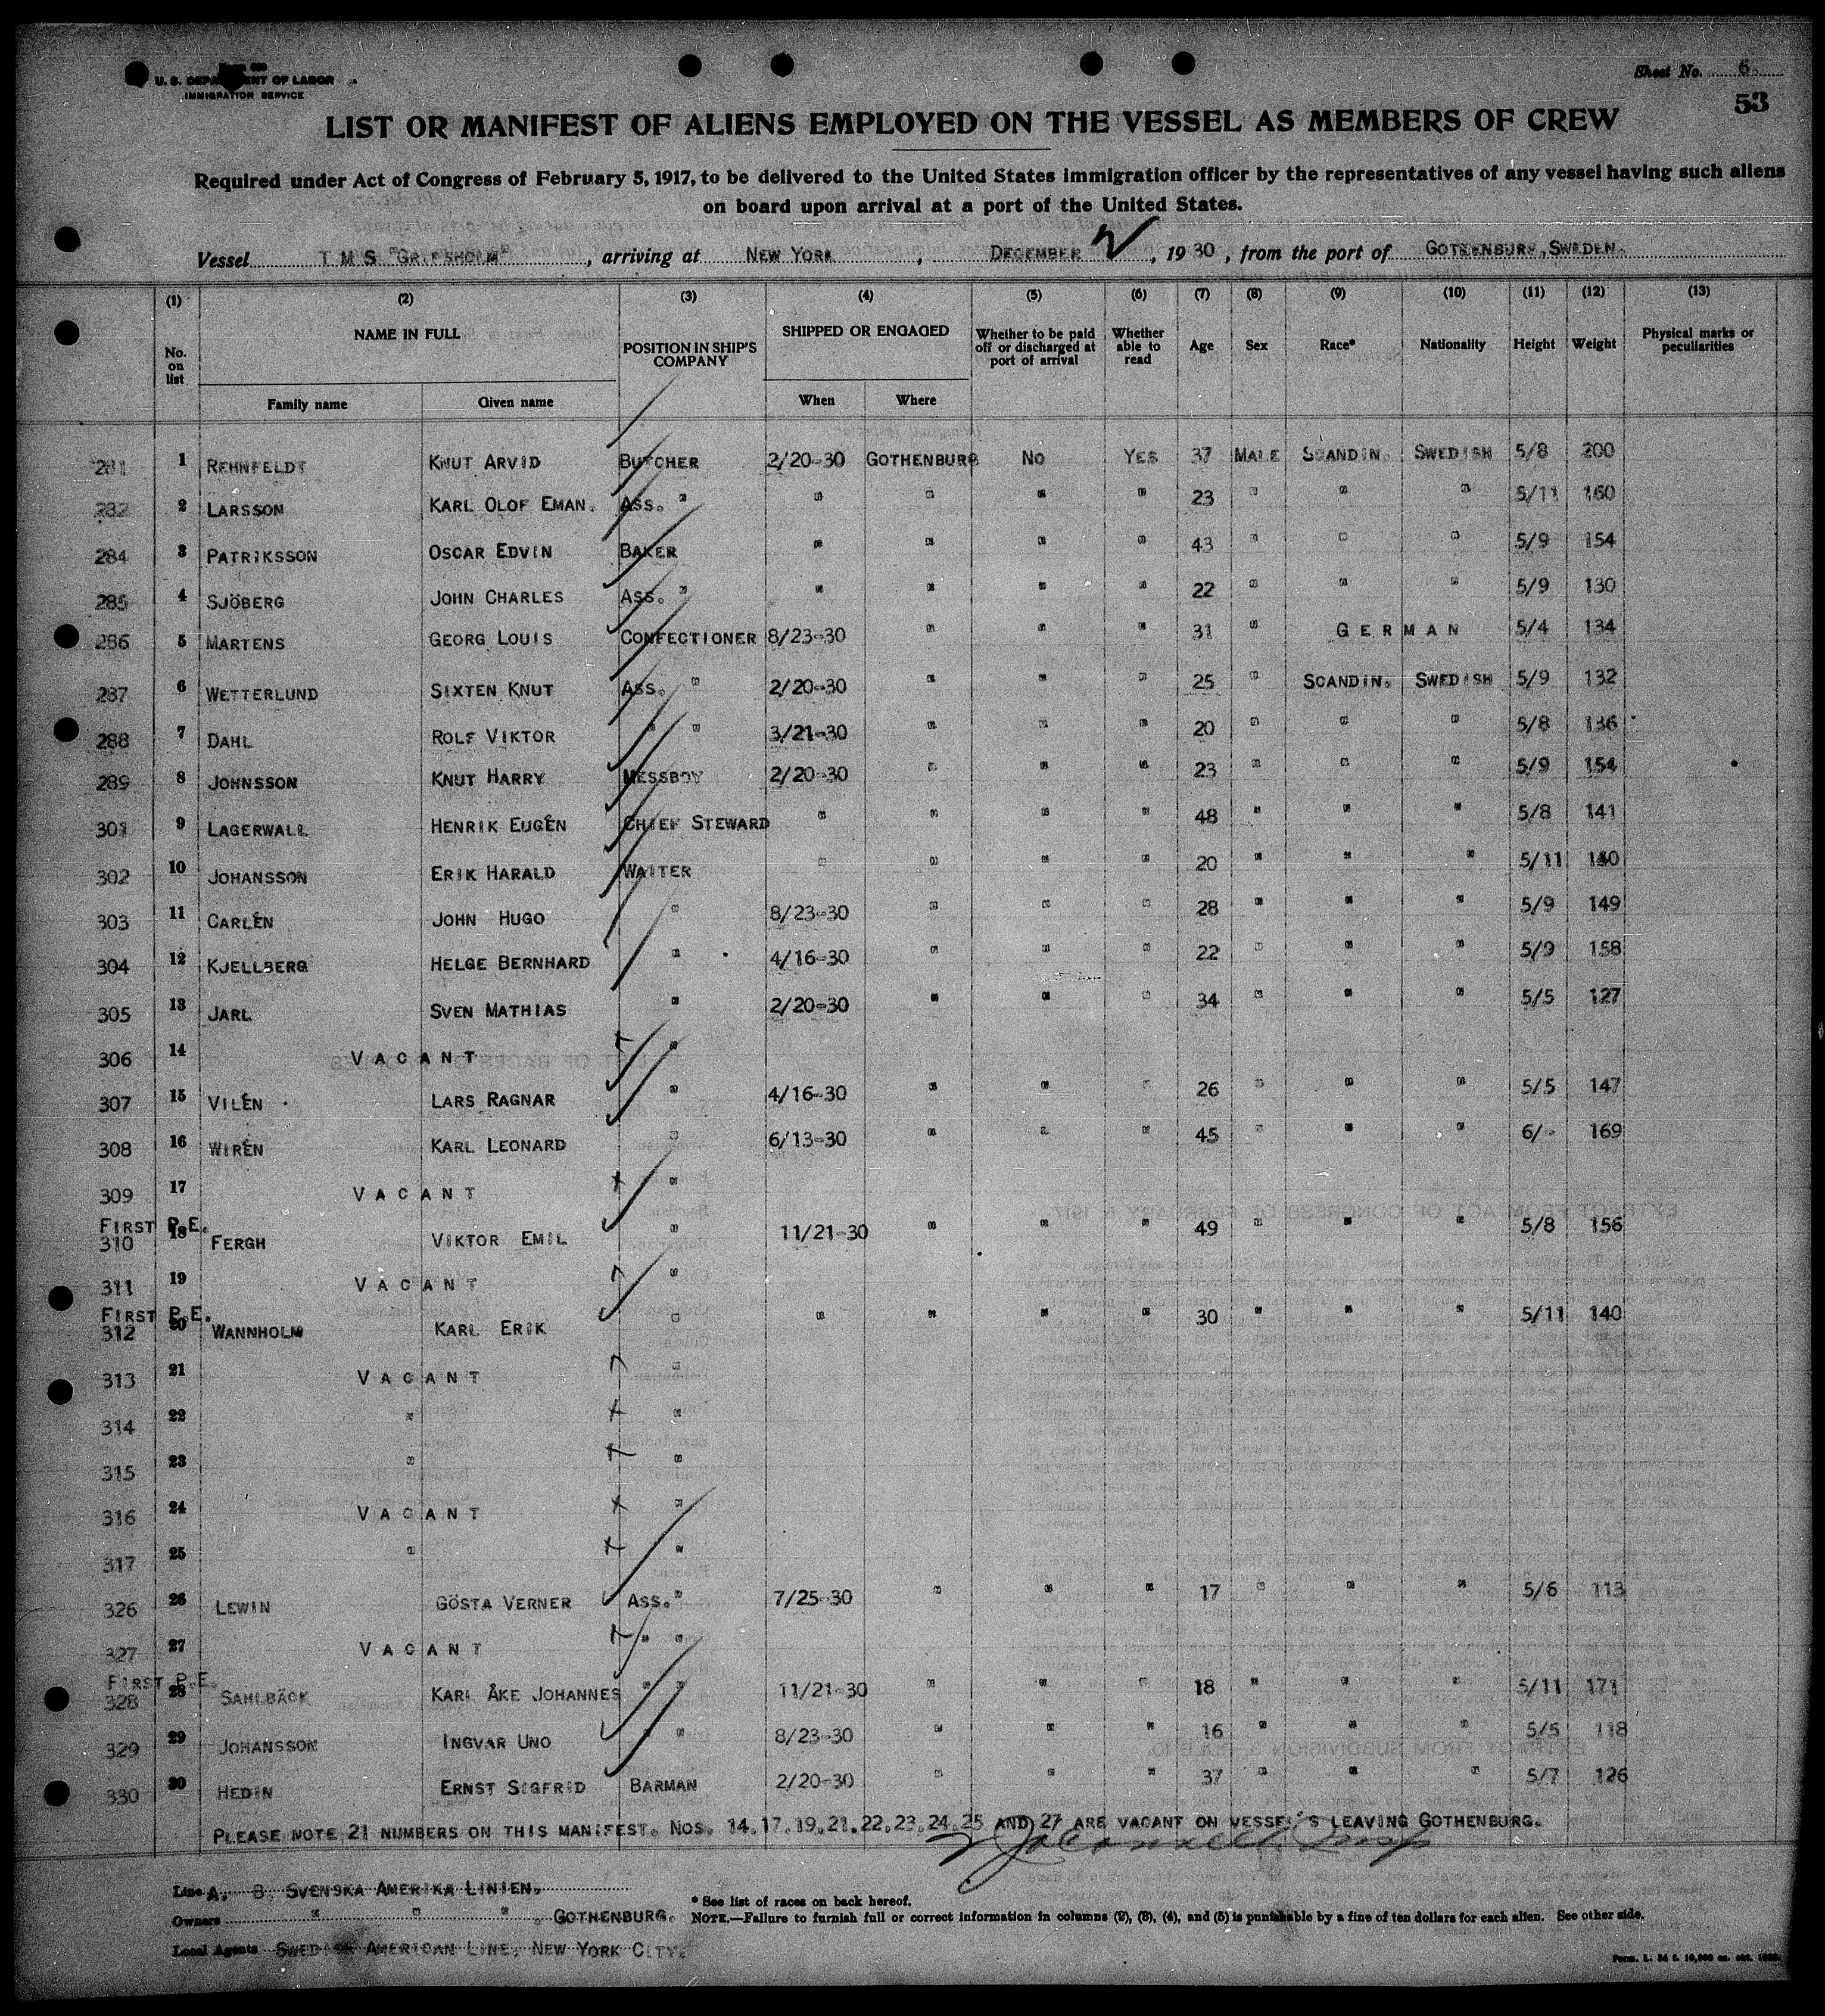 U. S. DEPARTMENT OF LABOR
IMMIGRATION SERVICE
Sheet No. 6
53
LIST OR MANIFEST OF ALIENS EMPLOYED ON THE VESSEL AS MEMBERS OF CREW
Required under Act of Congress of February 5, 1917, to be delivered to the United States immigration officer by the representatives of any vessel having such aliens
on board upon arrival at a port of the United States.
Vessel T M S "GRIPSHOLM", arriving at NEW YORK, DECEMBER, 1930, from the port of GOTHENBURG, SWEDEN.
(1) (2) (3) (4) (5) (6) (7) (8) (9) (10) (11) (12) (13)
No. on list NAME IN FULL POSITION IN SHIP'S COMPANY SHIPPED OR ENGAGED Whether to be paid off or discharged at port of arrival Whether able to read Age Sex Race* Nationality Height Weight Physical marks or peculiarities
Family name Given name When Where
281 1 REHNFELDT KNUT ARVID BUTCHER 2/20-30 GOTHENBURG NO YES 37 MALE SCANDIN. SWEDISH 5/8 200
282 2 LARSSON KARL OLOF EMAN. ASS. " " " " " 23 " " " 5/11 160
284 3 PATRIKSSON OSCAR EDVIN BAKER " " " " 43 " " " 5/9 154
285 4 SJÖBERG JOHN CHARLES ASS. " " " " " 22 " " " 5/9 130
286 5 MARTENS GEORG LOUIS CONFECTIONER 8/23-30 " " " 31 " G E R M A N 5/4 134
287 6 WETTERLUND SIXTEN KNUT ASS. " 2/20-30 " " " 25 " SCANDIN. SWEDISH 5/9 132
288 7 DAHL ROLF VIKTOR " " 3/21-30 " " " 20 " " " 5/8 136
289 8 JOHNSSON KNUT HARRY MESSBOY 2/20-30 " " " 23 " " " 5/9 154
301 9 LAGERWALL HENRIK EUGÉN CHIEF STEWARD " " " " 48 " " " 5/8 141
302 10 JOHANSSON ERIK HARALD WAITER " " " " 20 " " " 5/11 140
303 11 CARLÉN JOHN HUGO " 8/23-30 " " " 28 " " " 5/9 149
304 12 KJELLBERG HELGE BERNHARD " 4/16-30 " " " 22 " " " 5/9 158
305 13 JARL SVEN MATHIAS " 2/20-30 " " " 34 " " " 5/5 127
306 14 V A C A N T "
307 15 VILÉN LARS RAGNAR " 4/16-30 " " " 26 " " " 5/5 147
308 16 WIRÉN KARL LEONARD " 6/13-30 " " " 45 " " " 6/- 169
309 17 V A C A N T "
FIRST P.E.
310 18 FERGH VIKTOR EMIL " 11/21-30 " " " 49 " " " 5/8 156
311 19 V A C A N T "
FIRST P.E.
312 20 WANNHOLM KARL ERIK " " " " " 30 " " " 5/11 140
313 21 V A C A N T "
314 22 " "
315 23 " "
316 24 V A C A N T "
317 25 " "
326 26 LEWIN GÖSTA VERNER ASS. " 7/25-30 " " " 17 " " " 5/6 113
327 27 V A C A N T " "
FIRST P.E.
328 28 SAHLBÄCK KARL ÅKE JOHANNES " " 11/21-30 " " " 18 " " " 5/11 171
329 29 JOHANSSON INGVAR UNO " " 8/23-30 " " " 16 " " " 5/5 118
330 30 HEDIN ERNST SIGFRID BARMAN 2/20-30 " " " 37 " " " 5/7 126
PLEASE NOTE 21 NUMBERS ON THIS MANIFEST. NOS. 14,17,19,21,22,23,24,25 AND 27 ARE VACANT ON VESSEL'S LEAVING GOTHENBURG.
Line A. B. SVENSKA AMERIKA LINIEN.
* See list of races on back hereof.
Owners " " " GOTHENBURG.
NOTE.—Failure to furnish full or correct information in columns (2), (3), (4), and (5) is punishable by a fine of ten dollars for each alien. See other side.
Local Agents SWEDISH AMERICAN LINE, NEW YORK CITY.